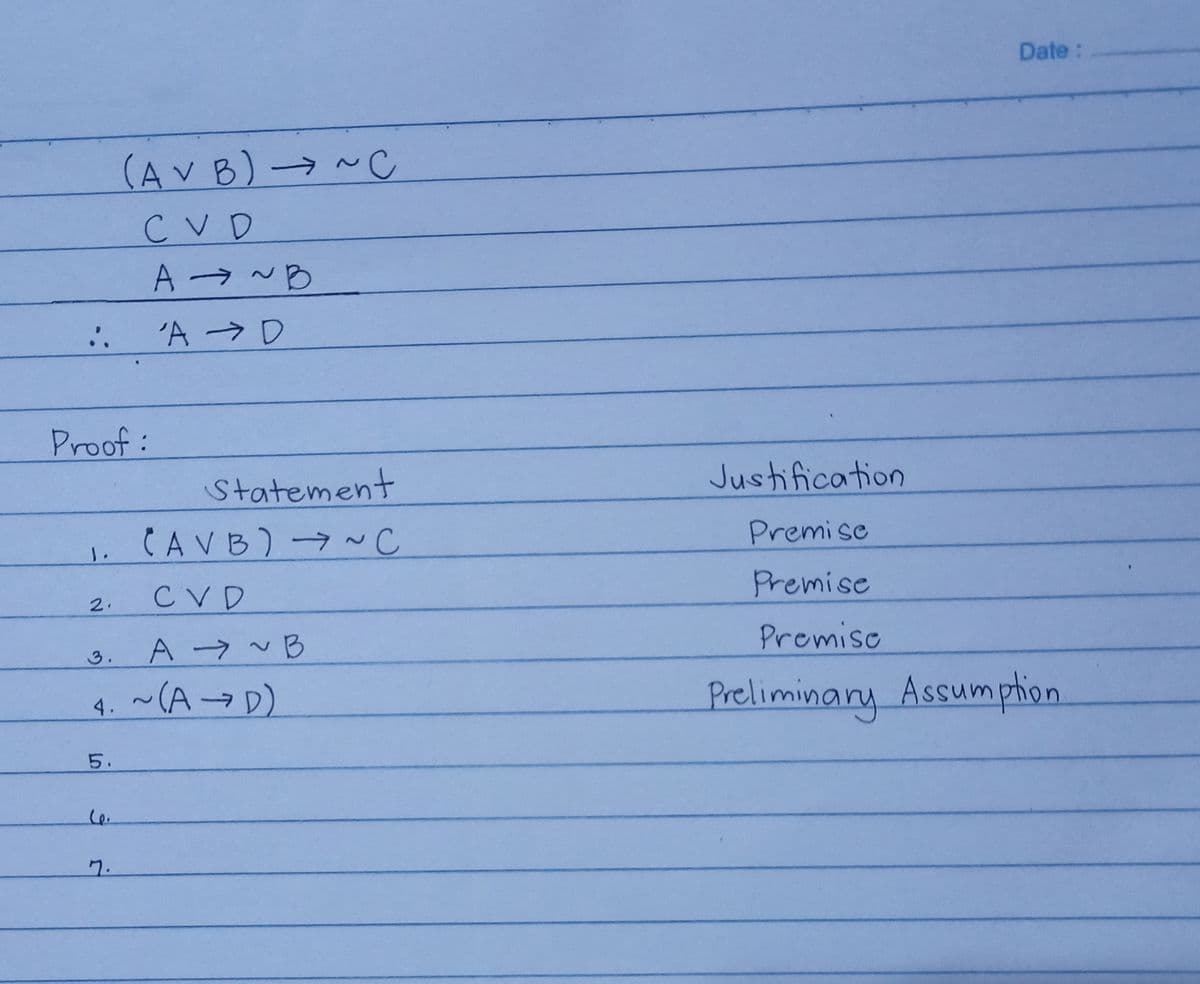 Date :
(A ∨ B) → ~C
C ∨ D
A → ~B
∴ 'A → D
Proof :
Statement Justification
1. (A ∨ B) → ~C Premise
2. C ∨ D Premise
3. A → ~B Premise
4. ~(A → D) Preliminary Assumption
5.
6.
7.